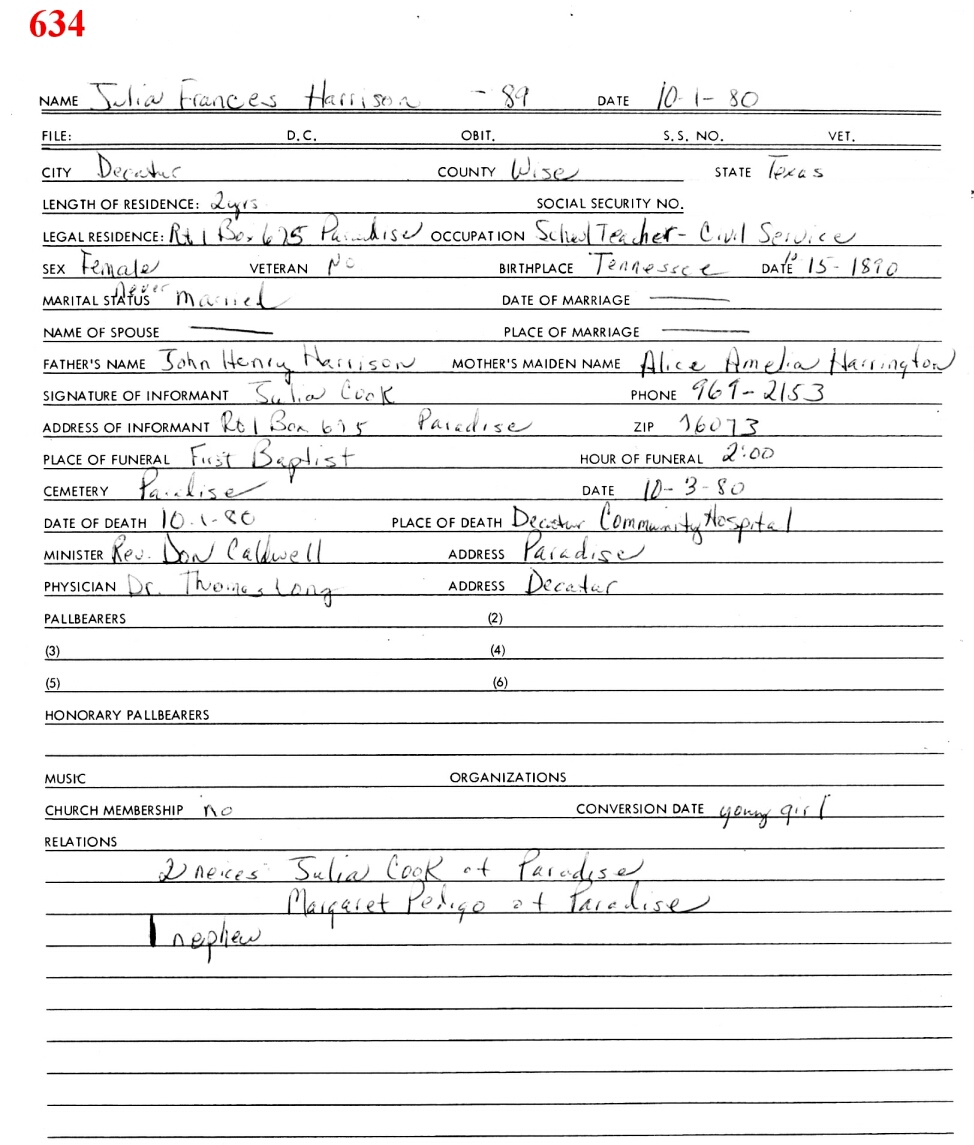 634
NAME Julia Frances Harrison - 89 DATE 10-1-80
FILE: D.C. OBIT. S.S. NO. VET.
CITY Decatur COUNTY Wise STATE Texas
LENGTH OF RESIDENCE: 2 yrs. SOCIAL SECURITY NO.
LEGAL RESIDENCE: Rt 1 Box Paradise OCCUPATION School Teacher - Civil Service
SEX Female VETERAN No BIRTHPLACE Tennessee DATE 15-1890
MARITAL STATUS Never Married DATE OF MARRIAGE
NAME OF SPOUSE PLACE OF MARRIAGE
FATHER'S NAME John Henry Harrison MOTHER'S MAIDEN NAME Alice Amelia Harrington
SIGNATURE OF INFORMANT Julia Cook PHONE 969-2153
ADDRESS OF INFORMANT Rt 1 Box Paradise ZIP 76073
PLACE OF FUNERAL First Baptist HOUR OF FUNERAL 2:00
CEMETERY Paradise DATE 10-3-80
DATE OF DEATH 10-1-80 PLACE OF DEATH Decatur Community Hospital
MINISTER Rev. Don Caldwell ADDRESS Paradise
PHYSICIAN Dr. Thomas Long ADDRESS Decatur
PALLBEARERS (2)
(3) (4)
(5) (6)
HONORARY PALLBEARERS
MUSIC ORGANIZATIONS
CHURCH MEMBERSHIP no CONVERSION DATE young girl
RELATIONS
2 neices Julia Cook of Paradise
Margaret Pedigo of Paradise
1 nephew